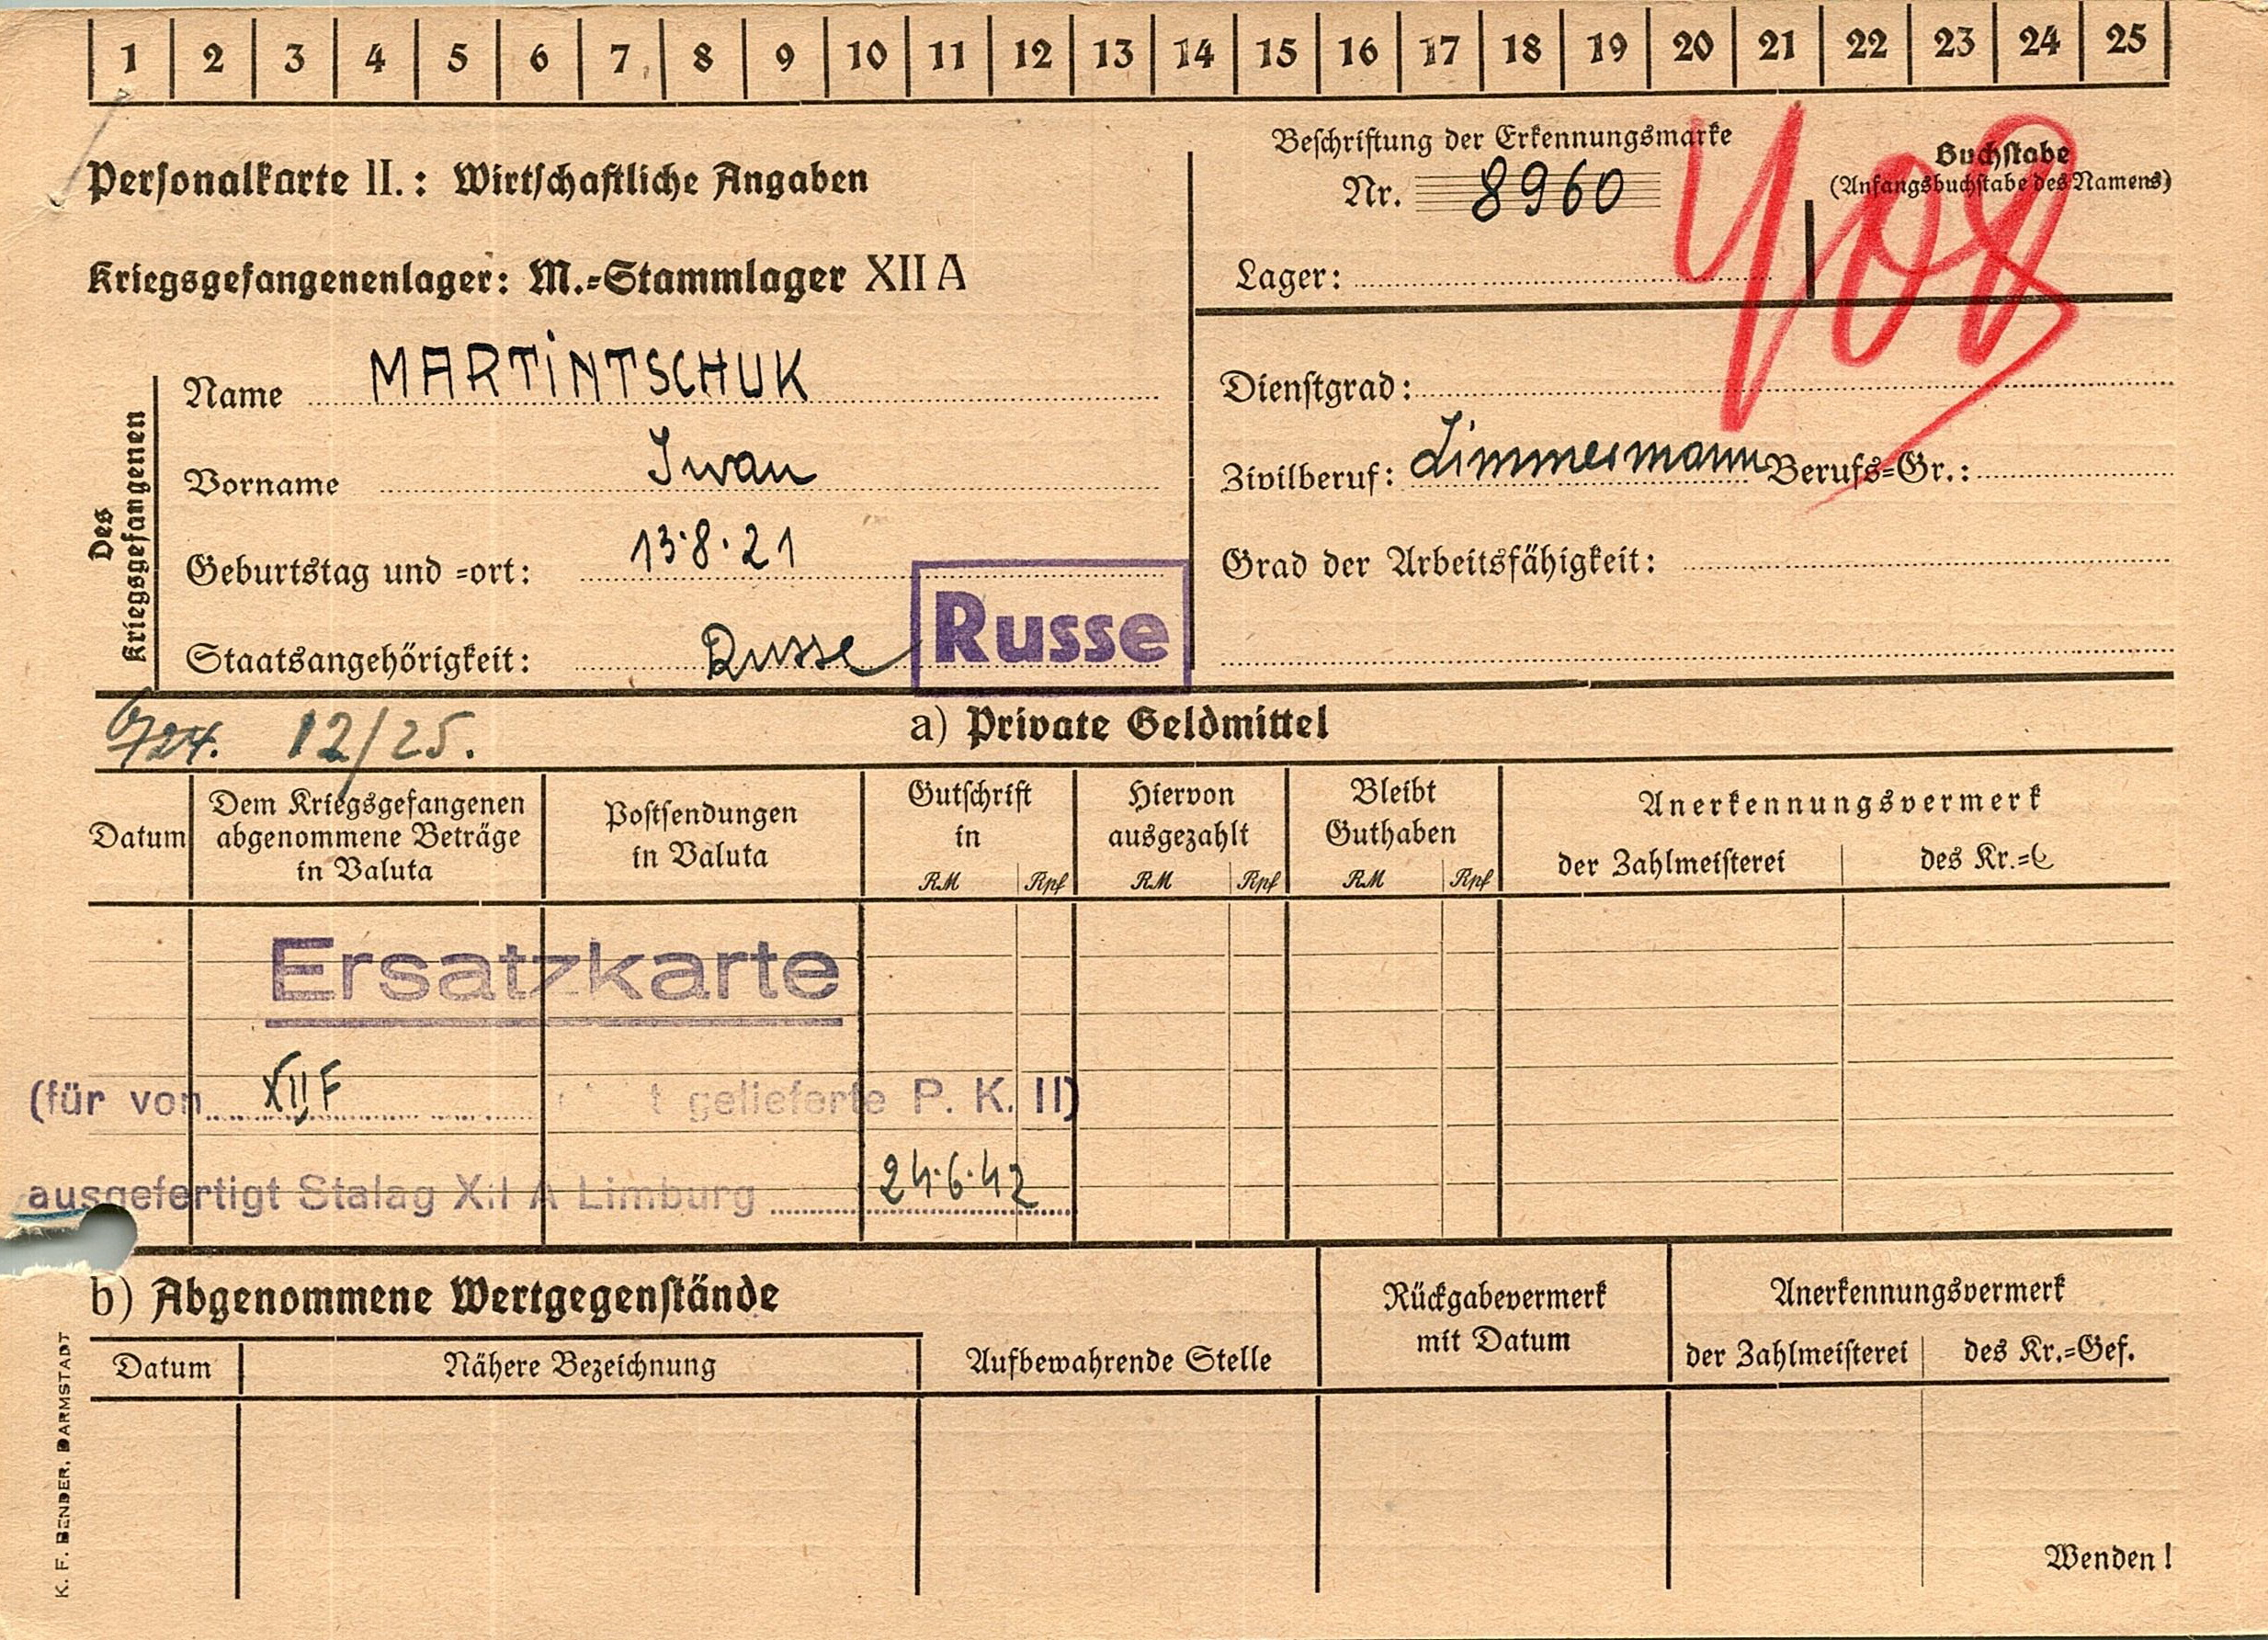 1 2 3 4 5 6 7 8 9 10 11 12 13 14 15 16 17 18 19 20 21 22 23 24 25
Personalkarte II.: Wirtschaftliche Angaben
Beschriftung der Erkennungsmarke
Nr. 8960
Buchstabe
(Anfangsbuchstabe des Namens)
408
Kriegsgefangenenlager: M.-Stammlager XII A
Lager:
Des
Kriegsgefangenen
Name MARTINTSCHUK
Dienstgrad:
Vorname Iwan
Zivilberuf: Zimmermann Berufs-Gr.:
Geburtstag und -ort: 13.8.21
Grad der Arbeitsfähigkeit:
Staatsangehörigkeit: Russe Russe
12/25.
a) Private Geldmittel
Datum
Dem Kriegsgefangenen
abgenommene Beträge
in Valuta
Postsendungen
in Valuta
Gutschrift
in
RM Rpf
Hiervon
ausgezahlt
RM Rpf
Bleibt
Guthaben
RM Rpf
Anerkennungsvermerk
der Zahlmeisterei
des Kr.-G
Ersatzkarte
(für von XII F t gelieferte P. K. II)
ausgefertigt Stalag XII A Limburg 24.6.42
b) Abgenommene Wertgegenstände
Datum
Nähere Bezeichnung
Aufbewahrende Stelle
Rückgabevermerk
mit Datum
Anerkennungsvermerk
der Zahlmeisterei
des Kr.-Gef.
Wenden!
K. F. BENDER, DARMSTADT